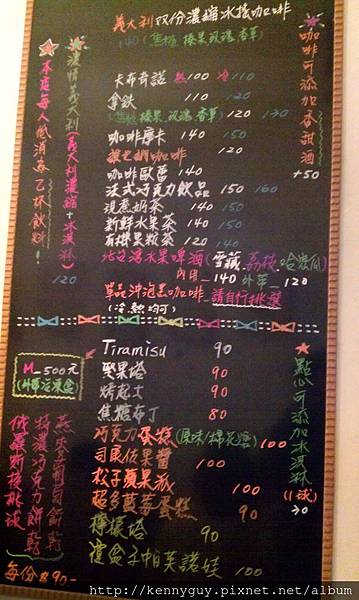 義大利双份濃縮冰搖咖啡
140 (焦糖 榛果 玫瑰 香草)
卡布奇諾 熱100 冰110
拿鐵 110 120
(焦糖 榛果 玫瑰 香草) 120 130
咖啡摩卡 140 150
120
咖啡歐蕾 140
法式巧克力飲品 150 160
現煮奶茶 140 150
新鮮水果茶 140 150
有機果粒茶 120 140
水果啤酒 (雪藏 荔枝 哈密瓜)
內用_140 外帶_120
單品沖泡黑咖啡_請自行挑選
(冷熱均可)
咖啡可添加香甜酒
+50
濃情義大利(義大利濃縮+冰淇淋)
120
本店每人低消為乙杯飲料!
Tiramisu 90
堅果塔 90
烤起士 90
焦糖布丁 80
巧克力蛋糕(原味/棉花糖) 100
司康佐果醬 100
松子蘋果派 100
超多藍莓蛋糕 90
檸檬塔 90
覆盆子帕芙諾娃 100
點心可添加冰淇淋
(1球)
30
M_500元
燕麥葡萄餅乾
特濃巧克力餅乾
俄羅斯核桃球
每份$90-
http://kennyguy.pixnet.net/album